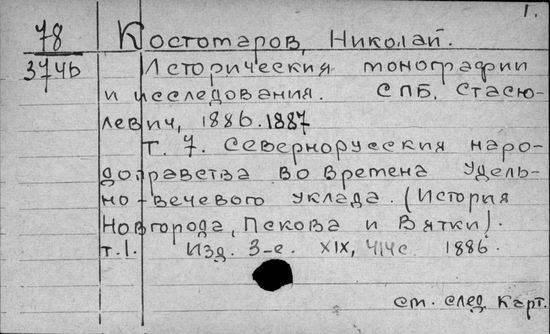 1.
78 Костомаров, Николай.
3746 Исторические монографии
и исследования. СПБ, Стасю-
левич, 1886.1887
т. 7. Севернорусские наро-
доправства во времена удель-
но-вечевого уклада. (История
Новгорода, Пскова и Вятки).
т.1. Изд. 3-е. XIX, 414с 1886.
см. след. карт.